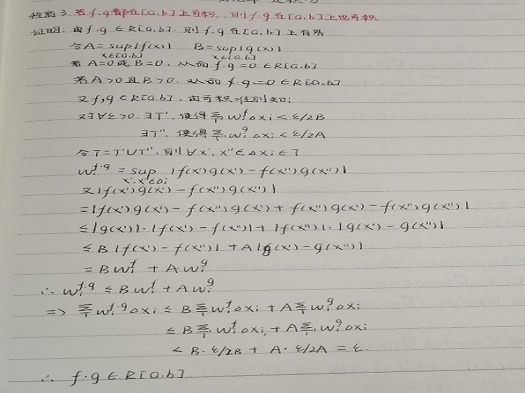 性质3. 若f.g都在[a.b]上可积,则f·g在[a.b]上也可积
证明: 由f.g∈R[a.b].则f.g在[a.b]上有界
令A=sup|f(x)| B=sup|g(x)|
x∈[a.b] x∈[a.b]
若A=0或B=0,从而f·g=0∈R[a.b]
若A>0且B>0.从而f·g=0∈R[a.b]
又f,g∈R[a.b],由可积准则知:
又∃∀ε>0.∃T',使得∑wᵢᶠΔxᵢ<ε/2B
∃T'',使得∑wᵢᵍΔxᵢ<ε/2A
令T=T'∪T'',则∀x'.x''∈Δxᵢ∈T
wᵢᶠ·ᵍ=sup|f(x')g(x')-f(x'')g(x'')|
x',x''∈Δᵢ
又|f(x')g(x')-f(x'')g(x'')|
=|f(x')g(x')-f(x'')g(x')+f(x'')g(x')-f(x'')g(x'')|
≤|g(x')|·|f(x')-f(x'')|+|f(x'')|·|g(x')-g(x'')|
≤B|f(x')-f(x'')|+A|g(x')-g(x'')|
=Bwᵢᶠ+Awᵢᵍ
∴wᵢᶠ·ᵍ≤Bwᵢᶠ+Awᵢᵍ
⇒∑wᵢᶠ·ᵍΔxᵢ≤B∑wᵢᶠΔxᵢ+A∑wᵢᵍΔxᵢ
≤B∑wᵢᶠΔxᵢ+A∑wᵢᵍΔxᵢ
<B·ε/2B+A·ε/2A=ε
∴f·g∈R[a.b]